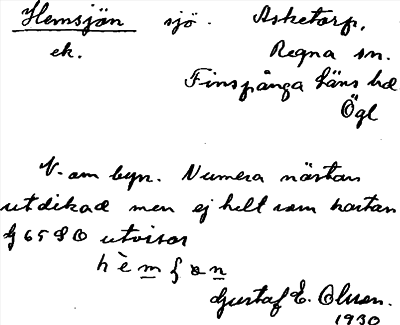 Hemsjön sjö. Asketorp,
ek. Regna sn.
Finspånga läns hd
Ögl
V. om byn. Numera nästan
utdikad men ej helt som kartan
65 SO utvisar
Gustaf E. Olsson.
1930